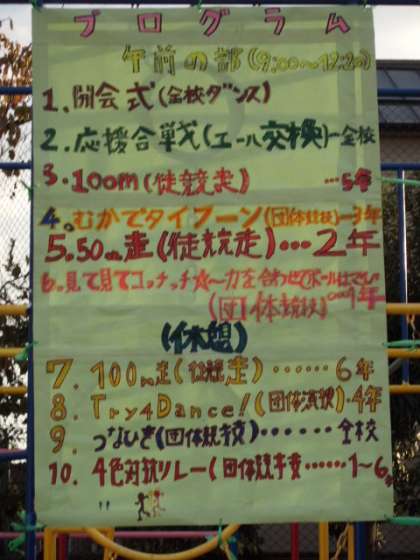 プログラム
午前の部(9:00〜12:20)
1.開会式(全校ダンス)
2.応援合戦(エール交換)—全校
3.100m(徒競走) …5年
4.むかでタイフーン(団体競技)—3年
5.50m走(徒競走)…2年
6.見て見てコッチッチ☆〜力を合わせてボールはこび〜
(団体競技)…1年
(休憩)
7.100m走(徒競走)……6年
8.Try4Dance!(団体演技)-4年
9.つなひき(団体競技)……全校
10.4色対抗リレー(団体競技……1〜6年